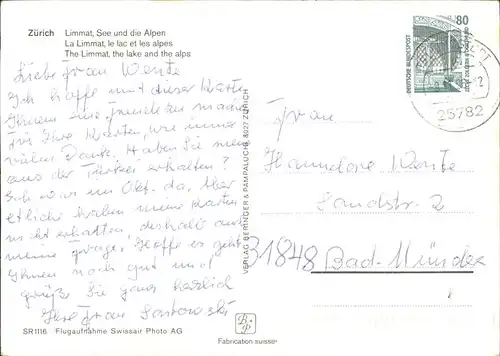 Zürich Limmat, See und die Alpen
La Limmat, le lac et les alpes
The Limmat, the lake and the alps
Liebe Frau Wente
Ich hoffe mit dieser Karte
Ihnen eine Freude zu machen
für Ihre Karten, wie immer
vielen Dank. Haben Sie meine
aus der Türkei erhalten?
Ich war im Okt. da. Aber
etliche haben meine Karten
nicht erhalten, deshalb auch
meine Frage. Hoffe es geht
Ihnen noch gut und
grüße Sie ganz herzlich
Ihre Frau
SR1116 Flugaufnahme Swissair Photo AG
VERLAG BERINGER & PAMPALUCHI, 8027 ZÜRICH
Fabrication suisse
80
DEUTSCHE BUNDESPOST
ZECHE ZOLLERN II DORTMUND
25782
Frau
Hannelore Wente
Landstr. 2
31848 Bad-Münder